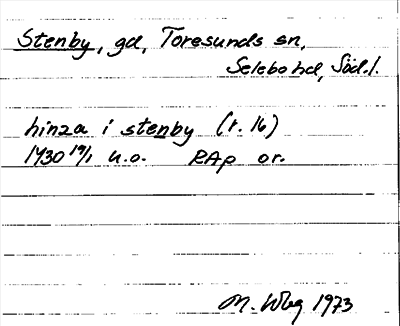 Stenby, gd, Toresunds sn,
Selebo hd, Södl.
hinza i stenby (r. 16)
1430 19/1 u.o. RAp or.
M. Wbg 1973